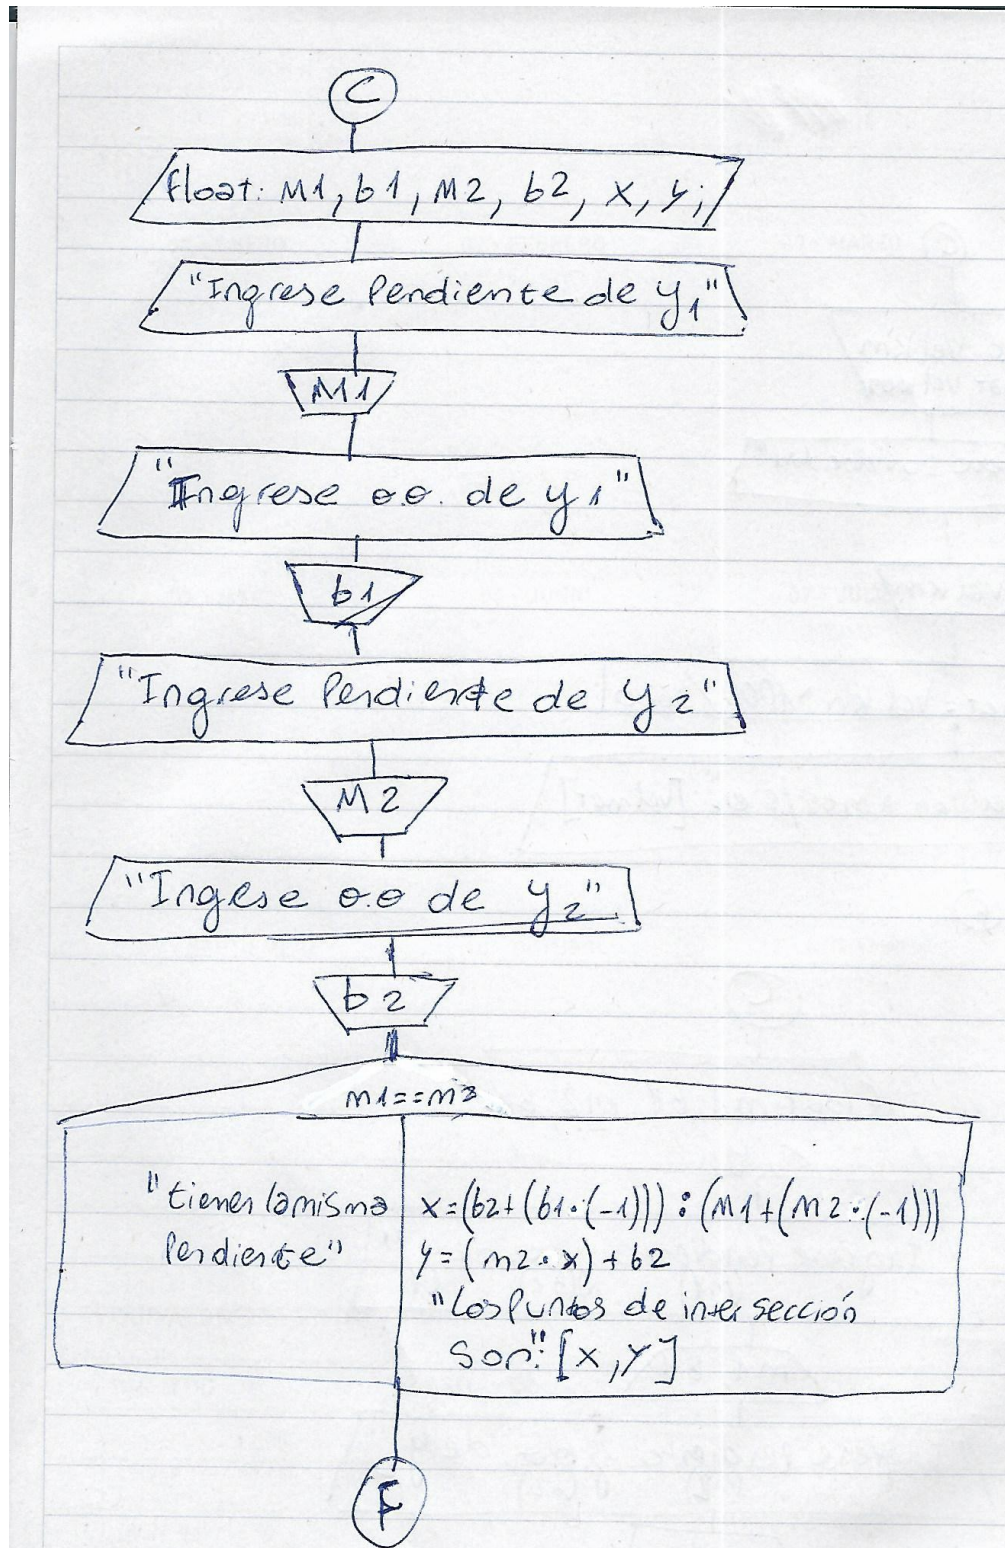 C
float: M1, b1, M2, b2, x, y;
"Ingrese Pendiente de y1"
M1
"Ingrese o.o. de y1"
b1
"Ingrese Pendiente de y2"
M2
"Ingese o.o de y2"
b2
m1==m2
"tienen la misma
Pendiente"
x=(b2+(b1·(-1))):(M1+(M2·(-1)))
y=(m2·x)+b2
"Los Puntos de intersección
son:" [x,y]
F